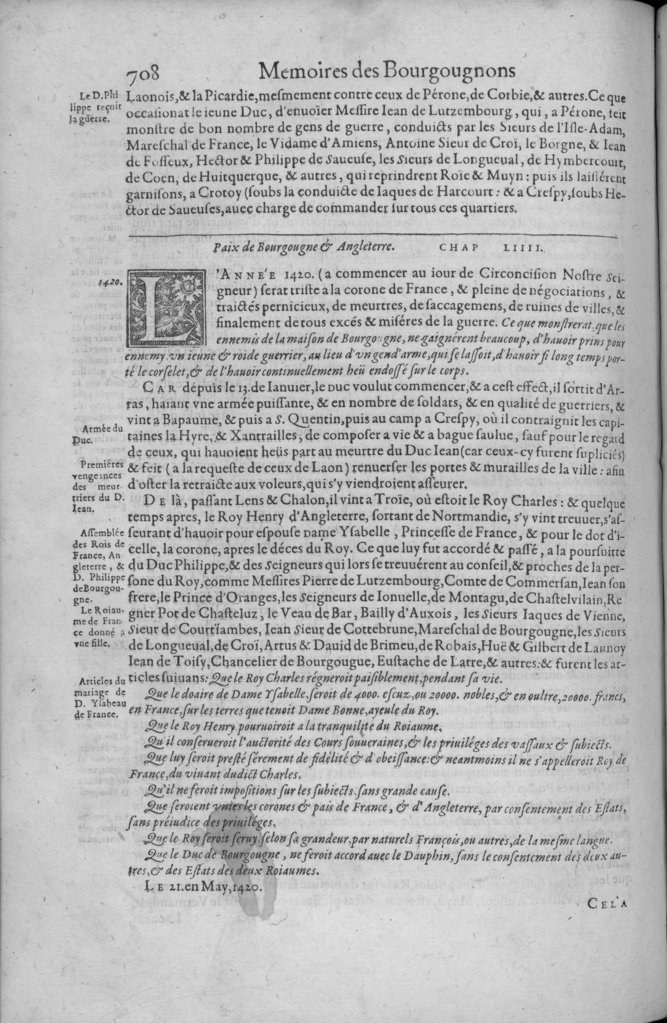 708 Memoires des Bourgougnons
Le D. Phi
lippe reçoit
la guerre.
Laonois, & la Picardie, mesmement contre ceux de Pérone, de Corbie, & autres. Ce que
occasionat le ieune Duc, d'enuoier Messire Iean de Lutzembourg, qui, a Pérone, feit
monstre de bon nombre de gens de guerre, conduicts par les Sieurs de l'Isle-Adam,
Mareschal de France, le Vidame d'Amiens, Antoine Sieur de Croï, le Borgne, & Iean
de Fosseux, Hector & Philippe de Saueuse, les Sieurs de Longueual, de Hymbercourt,
de Coen, de Huitquerque, & autres, qui reprindrent Roïe & Muyn: puis ils laissérent
garnisons, a Crotoy (soubs la conduicte de Iaques de Harcourt: & a Crespy, soubs He-
ctor de Saueuses, auec charge de commander sur tous ces quartiers.
Paix de Bourgougne & Angleterre. CHAP LIIII.
1420.
L'ANNE'E 1420. (a commencer au iour de Circoncision Nostre Sei-
gneur) serat triste a la corone de France, & pleine de négociations, &
traictés pernicieux, de meurtres, de saccagemens, de ruines de villes, &
finalement de tous excés & miséres de la guerre. Ce que monstrerat, que les
ennemis de la maison de Bourgogne, ne gaignérent beaucoup, d'hauoir prins pour
ennemy vn ieune & roide guerrier, au lieu d'vn gend'arme, qui se lassoit, d'hauoir si long temps por-
té le corselet, & de l'hauoir continuellement heü endossé sur le corps.
CAR dépuis le 13. de Ianuier, le Duc voulut commencer, & a cest effect, il sortit d'Ar-
ras, haiant vne armée puissante, & en nombre de soldats, & en qualité de guerriers, &
vint a Bapaume, & puis a S. Quentin, puis au camp a Crespy, où il contraignit les capi-
Armée du
Duc.
taines la Hyre, & Xantrailles, de composer a vie & a bague saulue, sauf pour le regard
de ceux, qui hauoient heüs part au meurtre du Duc Iean (car ceux-cy furent supliciés)
Premiéres
vengeances
des meur-
triers du D.
Iean.
& feit (a la requeste de ceux de Laon) renuerser les portes & murailles de la ville: afin
d'oster la retraicte aux voleurs, qui s'y viendroient asseurer.
DE là, passant Lens & Chalon, il vint a Troïe, où estoit le Roy Charles: & quelque
temps apres, le Roy Henry d'Angleterre, sortant de Normandie, s'y vint treuuer, s'as-
Assemblée
des Rois de
France, An
gleterre, &
D. Philippe
de Bourgou-
gne.
seurant d'hauoir pour espouse Dame Ysabelle, Princesse de France, & pour le dot d'i-
celle, la corone, apres le déces du Roy. Ce que luy fut accordé & passé, a la poursuitte
du Duc Philippe, & des Seigneurs qui lors se treuuérent au conseil, & proches de la per-
sone du Roy, comme Messires Pierre de Lutzembourg, Comte de Commersan, Iean son
frere, le Prince d'Oranges, les Seigneurs de Ionuelle, de Montagu, de Chastelvilain, Re
Le Roiau-
me de Fran-
ce donné a
vne fille.
gner Pot de Chasteluz, le Veau de Bar, Bailly d'Auxois, les Sieurs Iaques de Vienne,
Sieur de Courtiambes, Iean Sieur de Cottebrune, Mareschal de Bourgougne, les Sieurs
de Longueual, de Croï, Artus & Dauid de Brimeu, de Robais, Huë & Gilbert de Lannoy
Iean de Toisy, Chancelier de Bourgougue, Eustache de Latre, & autres: & furent les ar-
Articles du
mariage de
D. Ylabeau
de France.
ticles suiuans: Que le Roy Charles régneroit paisiblement, pendant sa vie.
Que le doaire de Dame Ysabelle, seroit de 4000. escuz, ou 20000. nobles, & en oultre, 20000. francs,
en France, sur les terres que tenoit Dame Bonne, ayeule du Roy.
Que le Roy Henry pouruoiroit a la tranquilité du Roiaume.
Qu'il conserueroit l'auctorité des Cours souueraines, & les priuiléges des vassaux & subiects.
Que luy seroit presté sérement de fidélité & d'obeissance: & neantmoins il ne s'appelleroit Roy de
France, du viuant dudict Charles.
Qu'il ne feroit impositions sur les subiects, sans grande cause.
Que seroient vnies les corones & païs de France, & d'Angleterre, par consentement des Estats,
sans préiudice des priuiléges.
Que le Roy seroit seruy, selon sa grandeur, par naturels François, ou autres, de la mesme langue.
Que le Duc de Bourgougne, ne feroit accord auec le Dauphin, sans le consentement des deux au-
tres, & des Estats des deux Roiaumes.
LE 21. en May, 1420.
CELA